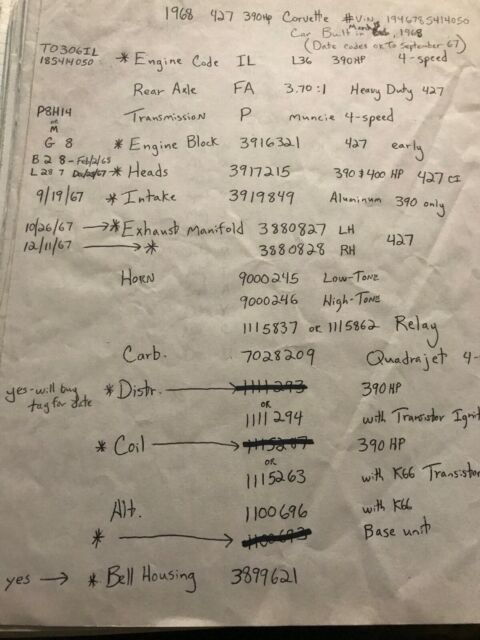 1968 427 390HP Corvette #Vin 194678S414050
Car Built in March, 1968
(Date codes ok To September 67)
T0306IL
18S414050 * Engine Code IL L36 390HP 4-speed
Rear Axle FA 3.70:1 Heavy Duty 427
P8H14 Transmission P muncie 4-speed
or
M
G 8 * Engine Block 3916321 427 early
B 2 8 - Feb/2/68
L 28 7 Dec/28/67 * Heads 3917215 390 & 400 HP 427 CI
9/19/67 * Intake 3919849 Aluminum 390 only
10/26/67 → * Exhaust Manifold 3880827 LH
427
12/11/67 → * 3880828 RH
HORN 9000245 Low-Tone
9000246 High-Tone
1115837 or 1115862 Relay
Carb. 7028209 Quadrajet 4-
yes-will buy
tag for date * Distr. → 1111293 390HP
OR
1111294 with Transistor Ignit
* Coil → 1115207 390 HP
OR
1115263 with K66 Transistor
Alt. 1100696 with K66
* → 1100693 Base unit
yes → * Bell Housing 3899621